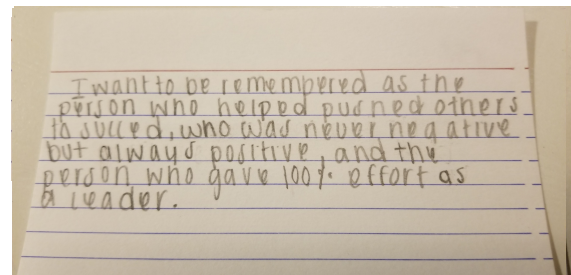 I want to be remempered as the
person who helped pushed others
to succed, who was never negative
but always positive, and the
person who gave 100% effort as
a leader.